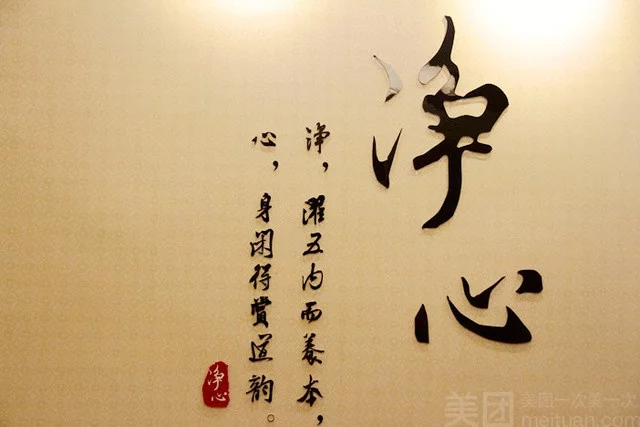 净心
净，濯五内而养本，
心，身闲得赏道韵。
净心
美团
美团一次美一次
meituan.com